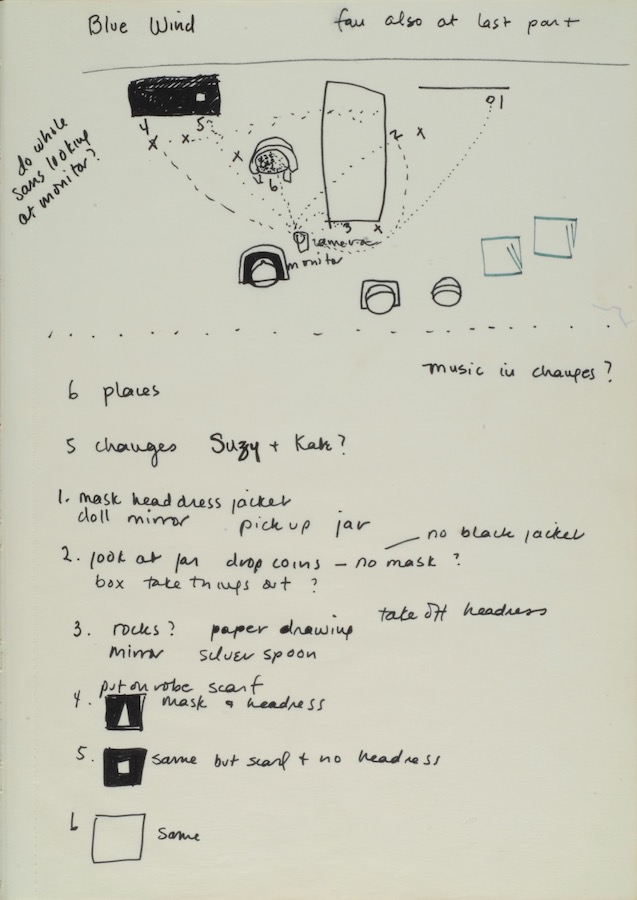 Blue Wind
fan also at last part
do whole
sans looking
at monitor?
01
4 x x 5
2 x
x
6
3 x
camera
monitor
music in changes?
6 places
5 changes Suzy + Kate?
1. mask headdress jacket
doll mirror pick up jar
no black jacket
2. look at jar drop coins – no mask ?
box take things out ?
take off headress
3. rocks? paper drawing
mirror silver spoon
put on robe scarf
4. mask & headress
5. same but scarf + no headress
6 same